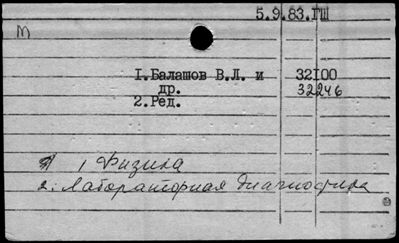 5.9.83.ГШ
М
1.Балашов В.Л. и 32100
др. 32246
2.Ред.
1. Физика
2. Лабораторная диагностика